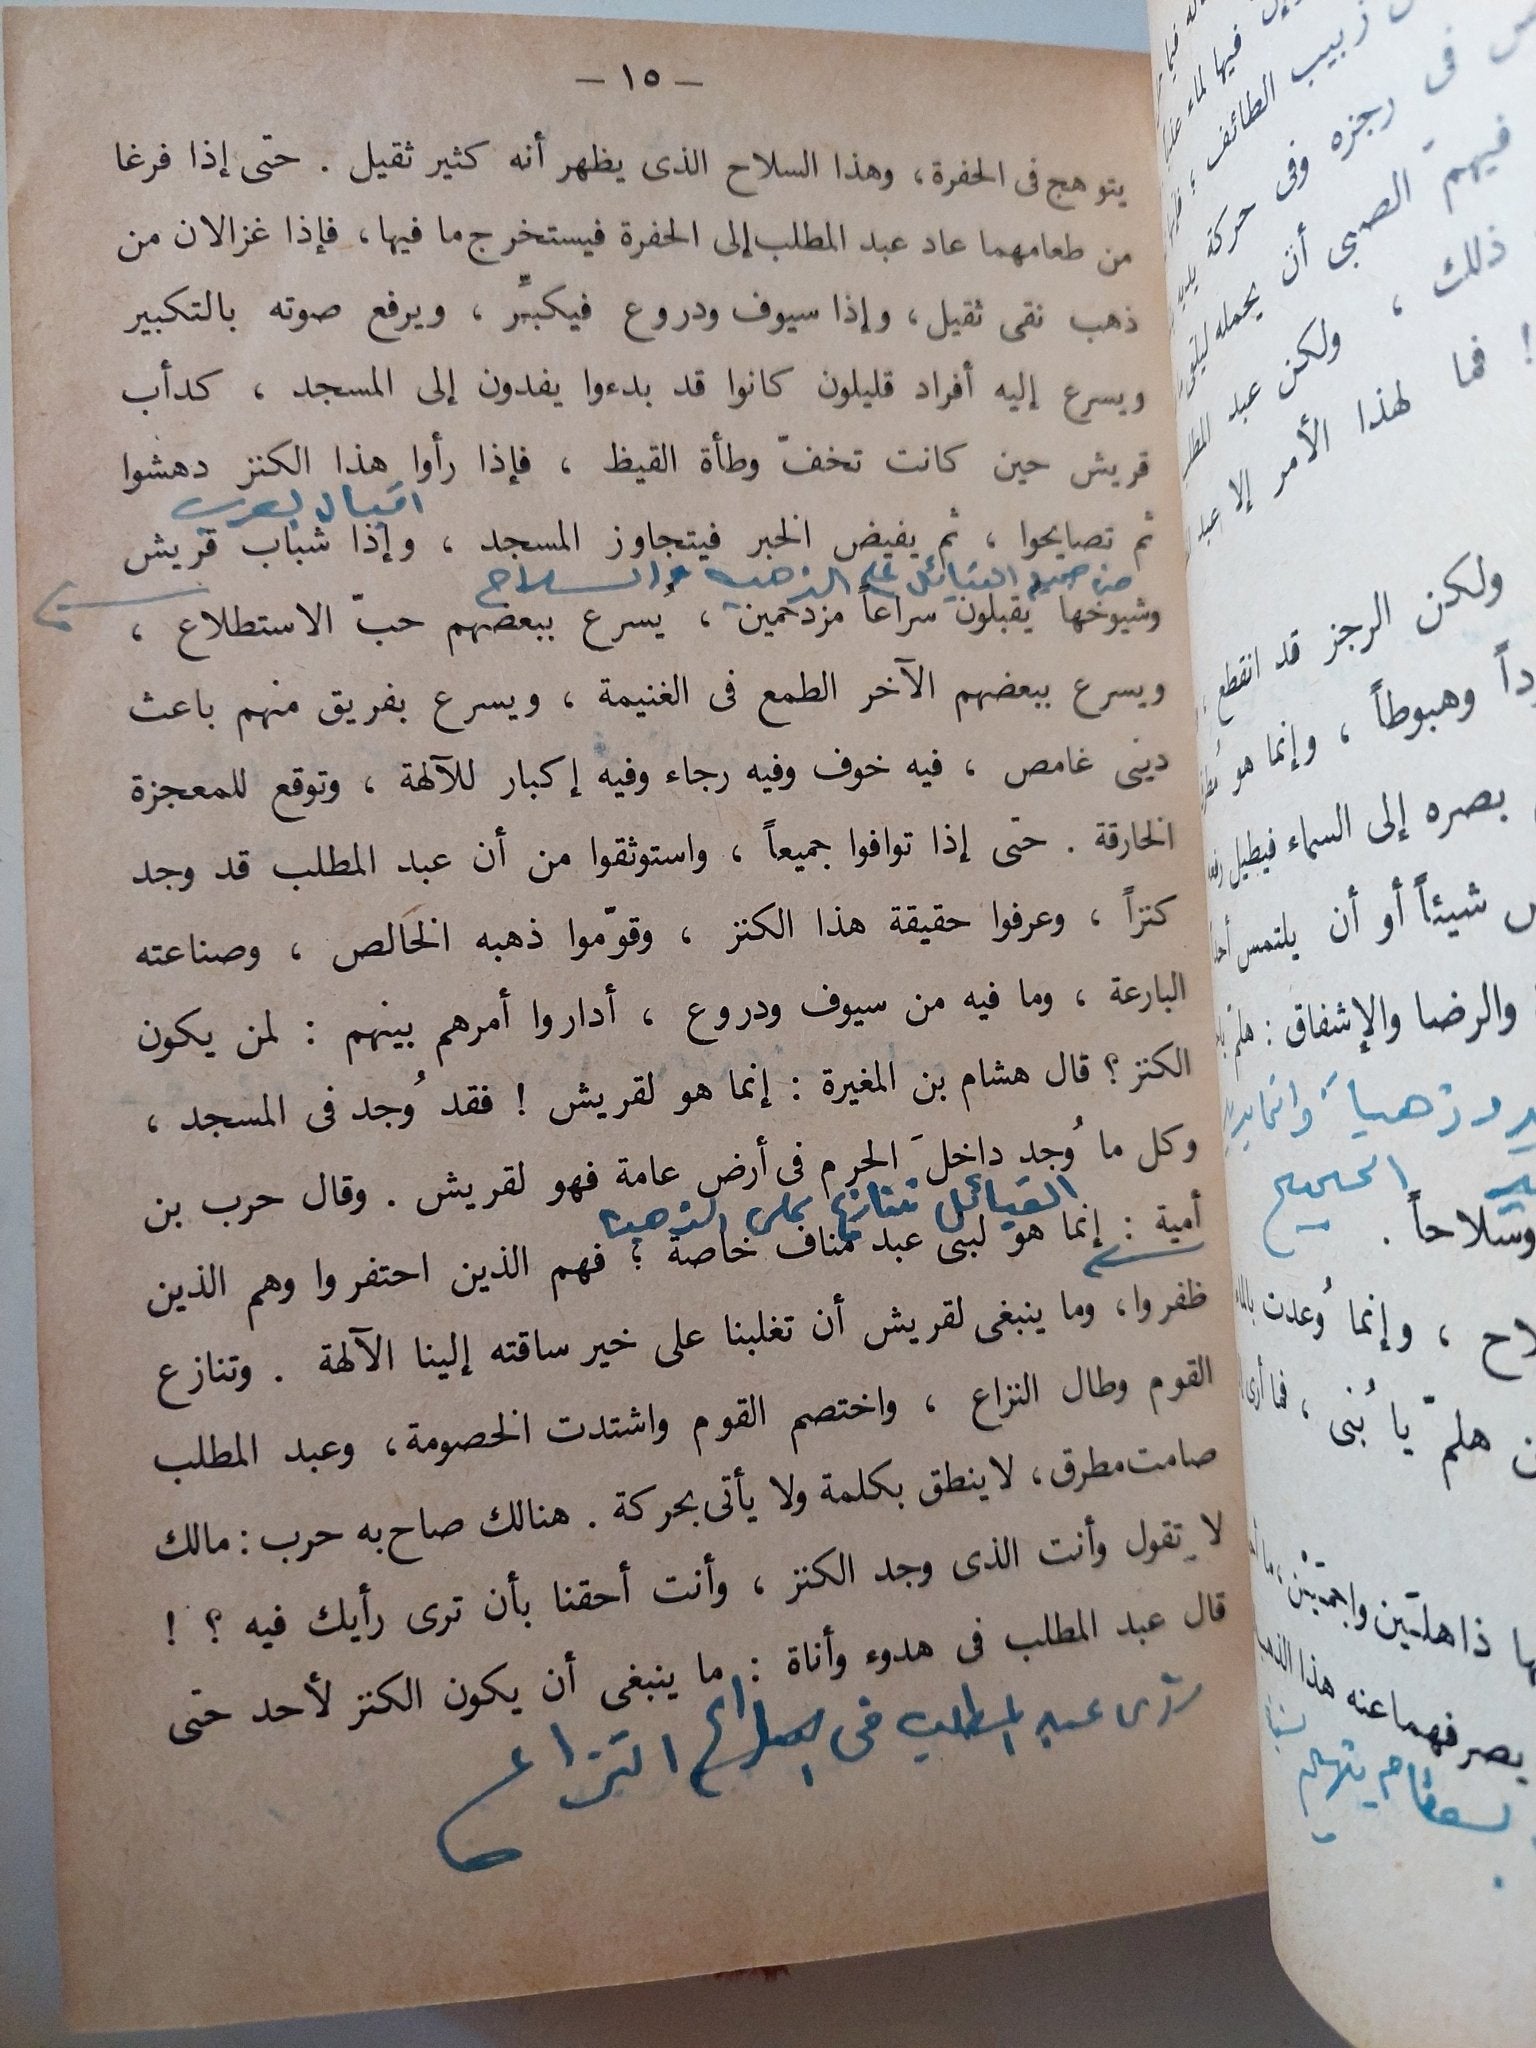 — ١٥ —
يتوهج فى الحفرة ، وهذا السلاح الذى يظهر أنه كثير ثقيل . حتى إذا فرغا
من طعامهما عاد عبد المطلب إلى الحفرة فيستخرج ما فيها ، فإذا غزالان من
ذهب نقى ثقيل ، وإذا سيوف ودروع فيكبِّر ، ويرفع صوته بالتكبير
ويسرع إليه أفراد قليلون كانوا قد بدءوا يفدون إلى المسجد ، كدأب
قريش حين كانت تخفّ وطأة القيظ ، فإذا رأوا هذا الكنز دهشوا
اقبال العرب
ثم تصايحوا ، ثم يفيض الخبر فيتجاوز المسجد ، وإذا شباب قريش
من جميع القبائل على الذهب والسلاح
وشيوخها يقبلون سراعاً مزدحمين ، يُسرع ببعضهم حبّ الاستطلاع ،
ويسرع ببعضهم الآخر الطمع فى الغنيمة ، ويسرع بفريق منهم باعث
دينى غامض ، فيه خوف وفيه رجاء وفيه إكبار للآلهة ، وتوقع للمعجزة
الخارقة . حتى إذا توافوا جميعاً ، واستوثقوا من أن عبد المطلب قد وجد
كنزاً ، وعرفوا حقيقة هذا الكنز ، وقوّموا ذهبه الخالص ، وصناعته
البارعة ، وما فيه من سيوف ودروع ، أداروا أمرهم بينهم : لمن يكون
الكنز ؟ قال هشام بن المغيرة : إنما هو لقريش ! فقد وُجد فى المسجد ،
وكل ما وُجد داخلَ الحرم فى أرض عامة فهو لقريش . وقال حرب بن
القبائل تتنازع على الذهب
أمية : إنما هو لبنى عبد مناف خاصة ؛ فهم الذين احتفروا وهم الذين
ظفروا ، وما ينبغى لقريش أن تغلبنا على خير ساقته إلينا الآلهة . وتنازع
القوم وطال النزاع ، واختصم القوم واشتدت الخصومة ، وعبد المطلب
صامت مطرق ، لا ينطق بكلمة ولا يأتى بحركة . هنالك صاح به حرب : مالك
لا تقول وأنت الذى وجد الكنز ، وأنت أحقنا بأن ترى رأيك فيه ؟ !
قال عبد المطلب فى هدوء وأناة : ما ينبغى أن يكون الكنز لأحد حتى
عبد المطلب فى النزاع
زبيب الطائف ،
فى رجزه وفى حركة
فيهمّ الصبى أن يحمله
ذلك ، ولكن عبد
! فما لهذا الأمر إلا
ولكن الرجز قد انقطع
وهبوطاً ، وإنما هو
بصره إلى السماء فيطيل
شيئاً أو أن يلتمس
والرضا والإشفاق : هلمّ
وسلاحاً .
، وإنما وُعدت
هلمّ يا بُنى ، فما أرى
ذاهلتَين واجمتَين ،
يصرفهما عنه هذا